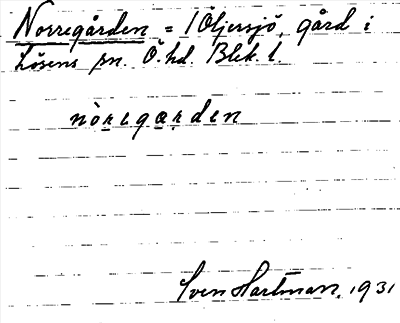 Norregården = 1 Öljersjö, gård i
Lösens sn. Ö. hd. Blek. l.
nòregarden
Sven Hartman. 1931